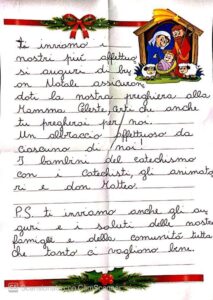 Ti inviamo i
nostri più affettuo
si auguri di bu
on Natale assicuran
doti la nostra preghiera alla
Mamma Celeste, certi che anche
tu pregherai per noi.
Un abbraccio affettuoso da
ciascuno di noi!
I bambini del catechismo
con i catechisti, gli animato
ri e don Matteo.
P.S. ti inviamo anche gli au
guri e i saluti delle nostre
famiglie e della comunità tutta
che tanto ci vogliono bene.